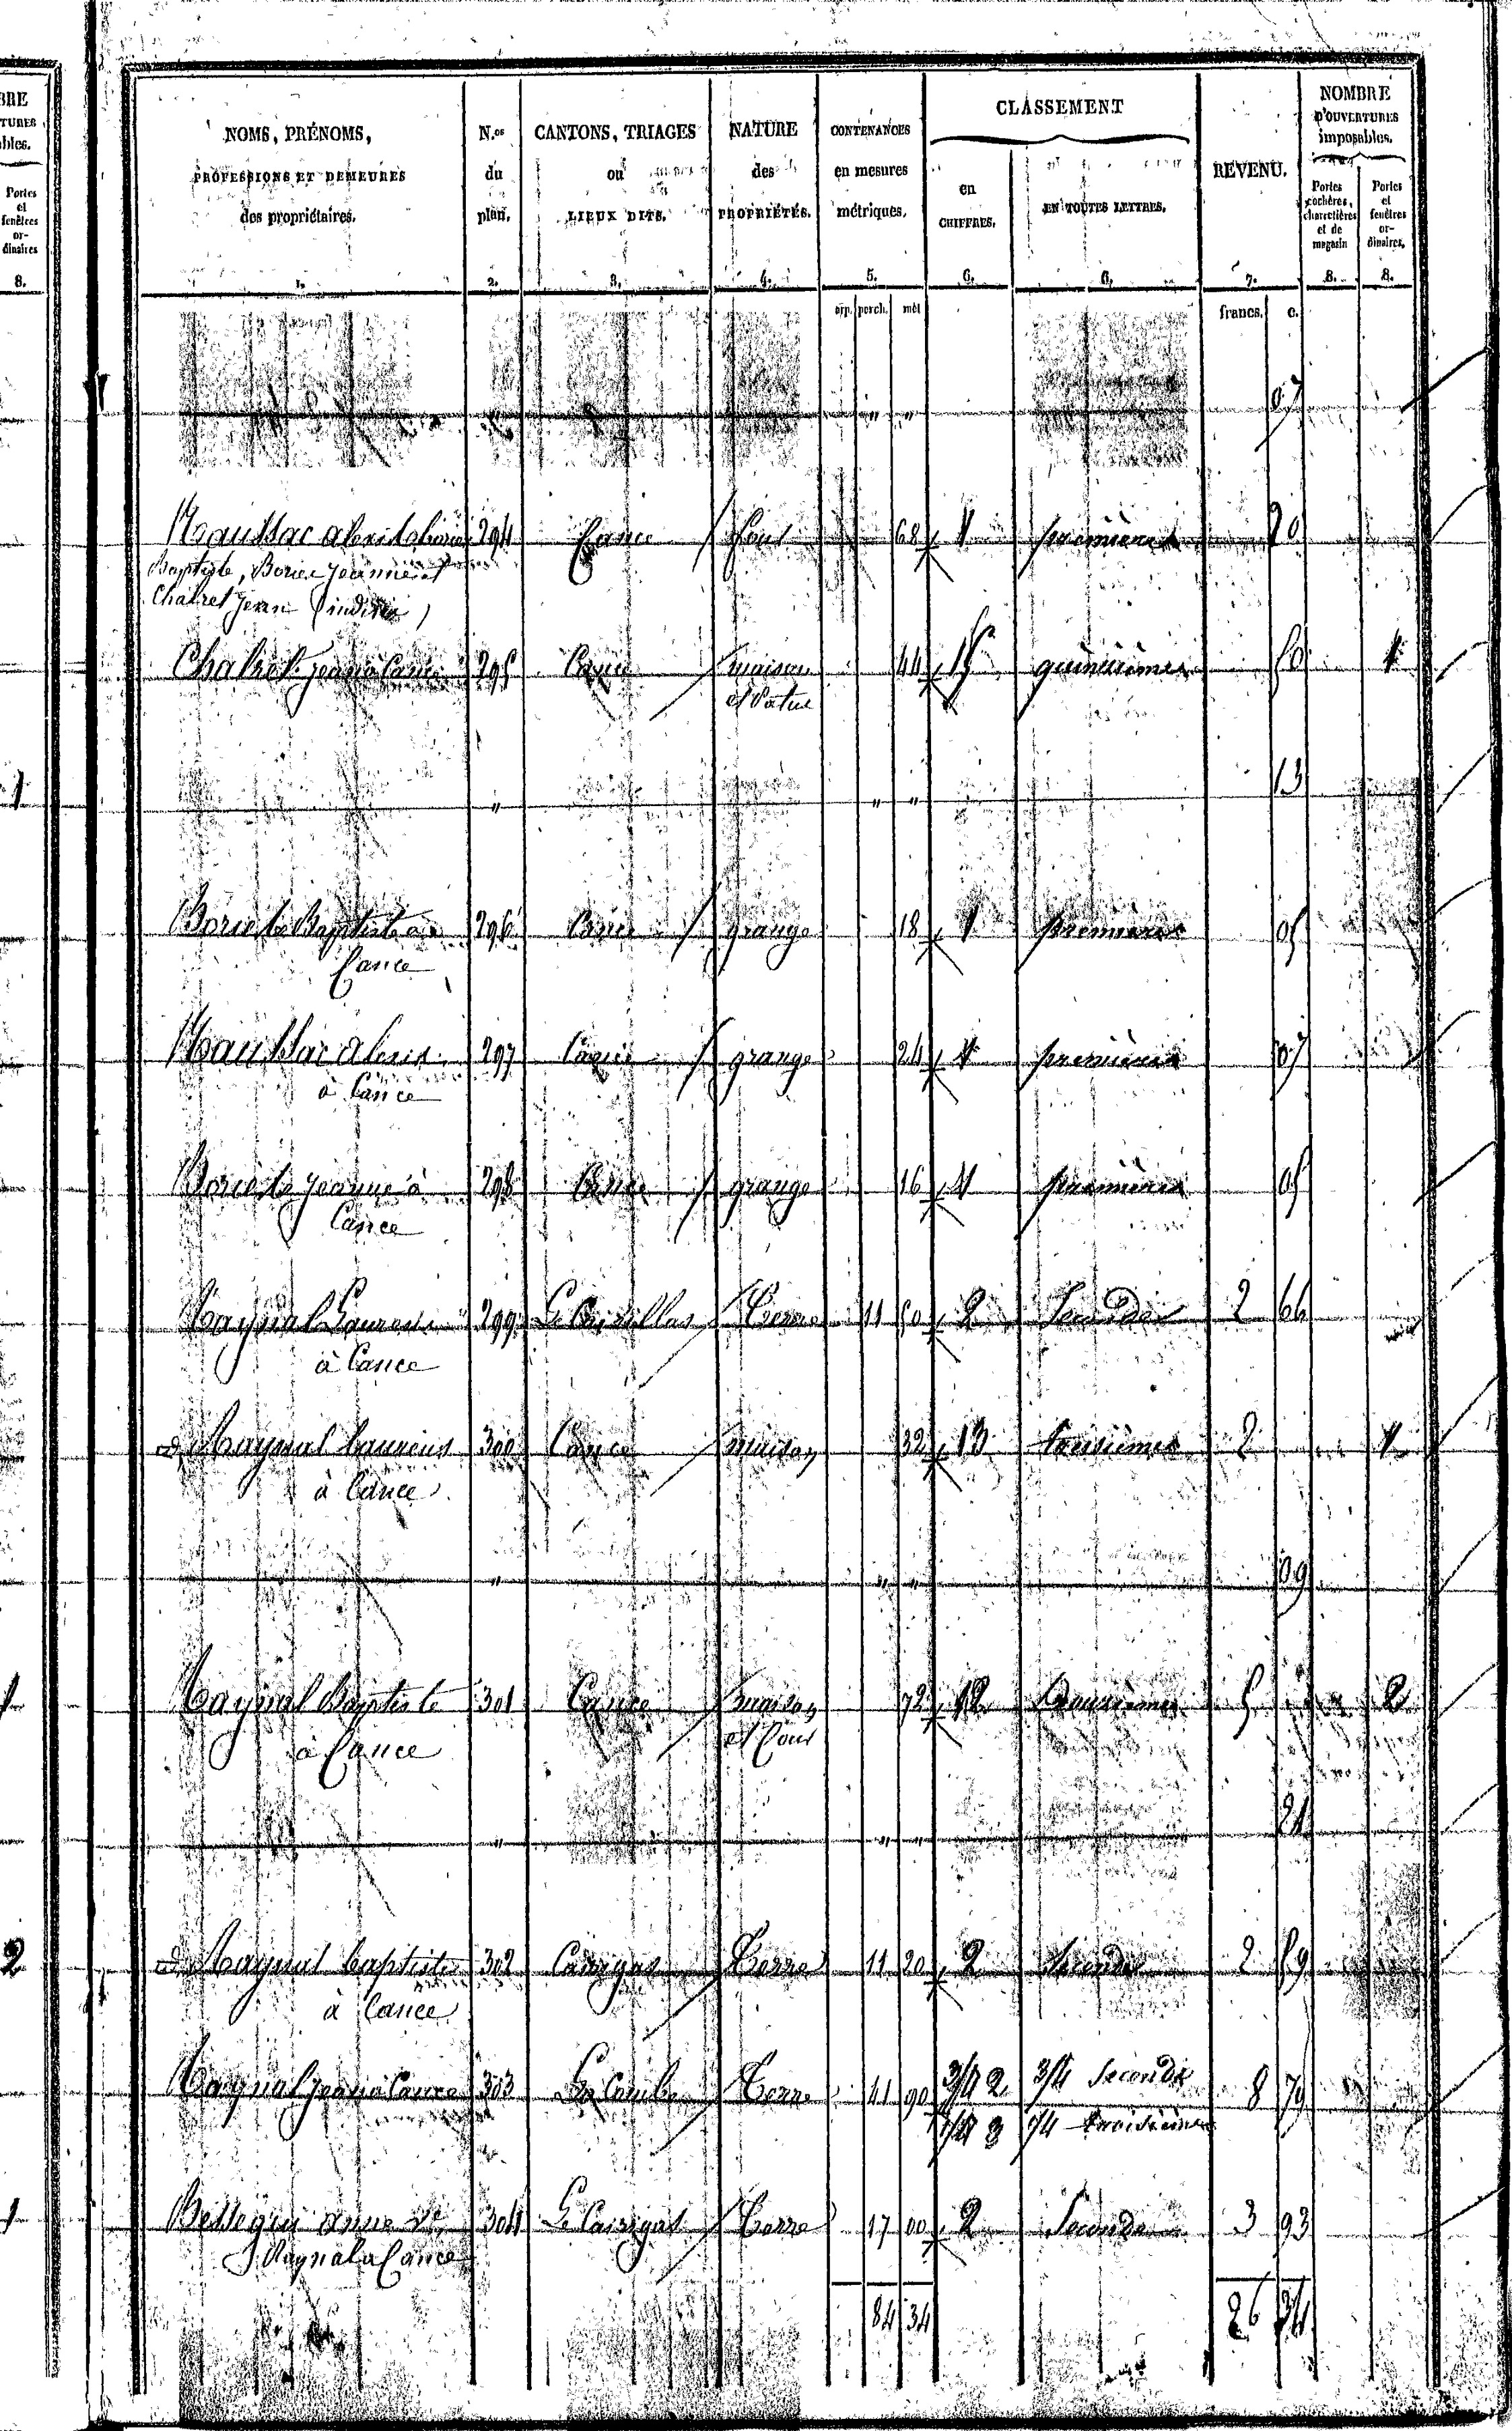 BRE
TURES
bles.
Portes
et
fenêtres
or-
dinaires
8.
NOMS, PRÉNOMS,
PROFESSIONS ET DEMEURES
des propriétaires.
1.
N.os
du
plan.
2.
CANTONS, TRIAGES
ou
LIEUX DITS.
3.
NATURE
des
PROPRIÉTÉS.
4.
CONTENANCES
en mesures
métriques.
5.
CLASSEMENT
en
CHIFFRES.
6.
EN TOUTES LETTRES.
6.
REVENU.
7.
NOMBRE
D'OUVERTURES
imposables.
Portes
cochères,
charretières
et de
magasin
8.
Portes
et
fenêtres
or-
dinaires.
8.
arp. perch. mèt francs. c.
" " " 07
294 Cance 68 1 première 20
Baptiste, Borie Jeanne et
Chatret Jean (indivis)
Chatret Jean à Cance 295 Cance maison 44 15 quinzième 50 1
et Patus
" " " 13
Borie Baptiste à 296 Cance grange 18 1 première 05
Cance
297 Cance grange 24 1 première 07
à Cance
Borie Jeanne à 298 Cance grange 16 1 première 05
Cance
299 Terre 11 50 2 Seconde 2 66
à Cance
Maynal Laurens 300 Cance maison 32 13 treizième 2 1
à Cance
" " " 09
Maynal Baptiste 301 Cance maison 72 12 douzième 5 2
à Cance
" " " 21
Maynal Baptiste 302 Terre 11 20 2 Seconde 2 59
à Cance
Maynal Jean à Cance 303 La Combe Terre 41 90 3/4 2 3/4 Seconde 8 79
1/4 3 1/4 troisième
anne 304 Terre 17 00 2 Seconde 3 93
Maynal à Cance
84 34 26 34